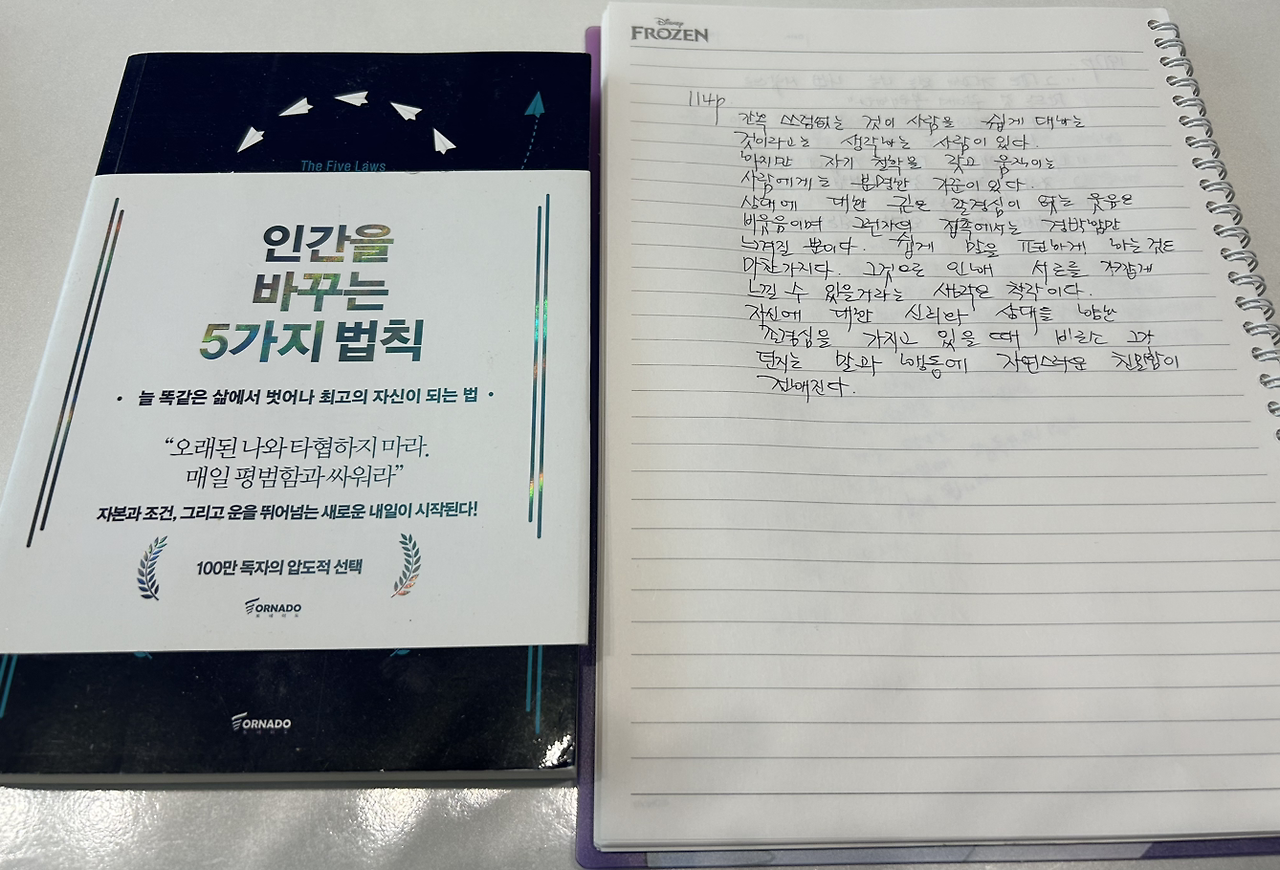 The Five Laws
인간을
바꾸는
5가지 법칙
• 늘 똑같은 삶에서 벗어나 최고의 자신이 되는 법 •
“오래된 나와 타협하지 마라.
매일 평범함과 싸워라”
자본과 조건, 그리고 운을 뛰어넘는 새로운 내일이 시작된다!
100만 독자의 압도적 선택
TORNADO
토네이도
TORNADO
Disney
FROZEN
114p
간혹 쓰임없는 것이 사람을 쉽게 대하는
것이라고는 생각하는 사람이 있다.
하지만 자기 철학을 갖고 움직이는
사람에게는 분명한 기준이 있다.
상대에 대한 깊은 존경심이 없는 웃음은
비웃음이며 그런자의 접촉에서는 경박함만
느껴질 뿐이다. 쉽게 말을 편하게 하는것도
마찬가지다. 그것으로 인해 서로를 가깝게
느낄 수 있을거라는 생각은 착각이다.
자신에 대한 신뢰와 상대를 향한
존경심을 가지고 있을 때 비로소 그가
던지는 말과 행동에 자연스러운 친밀함이
전해진다.